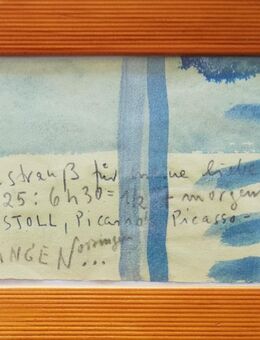 strauß für meine liebe
25: 6h30= 1/2 - morgen
STOLL, Picard, Picasso-
ANGEN